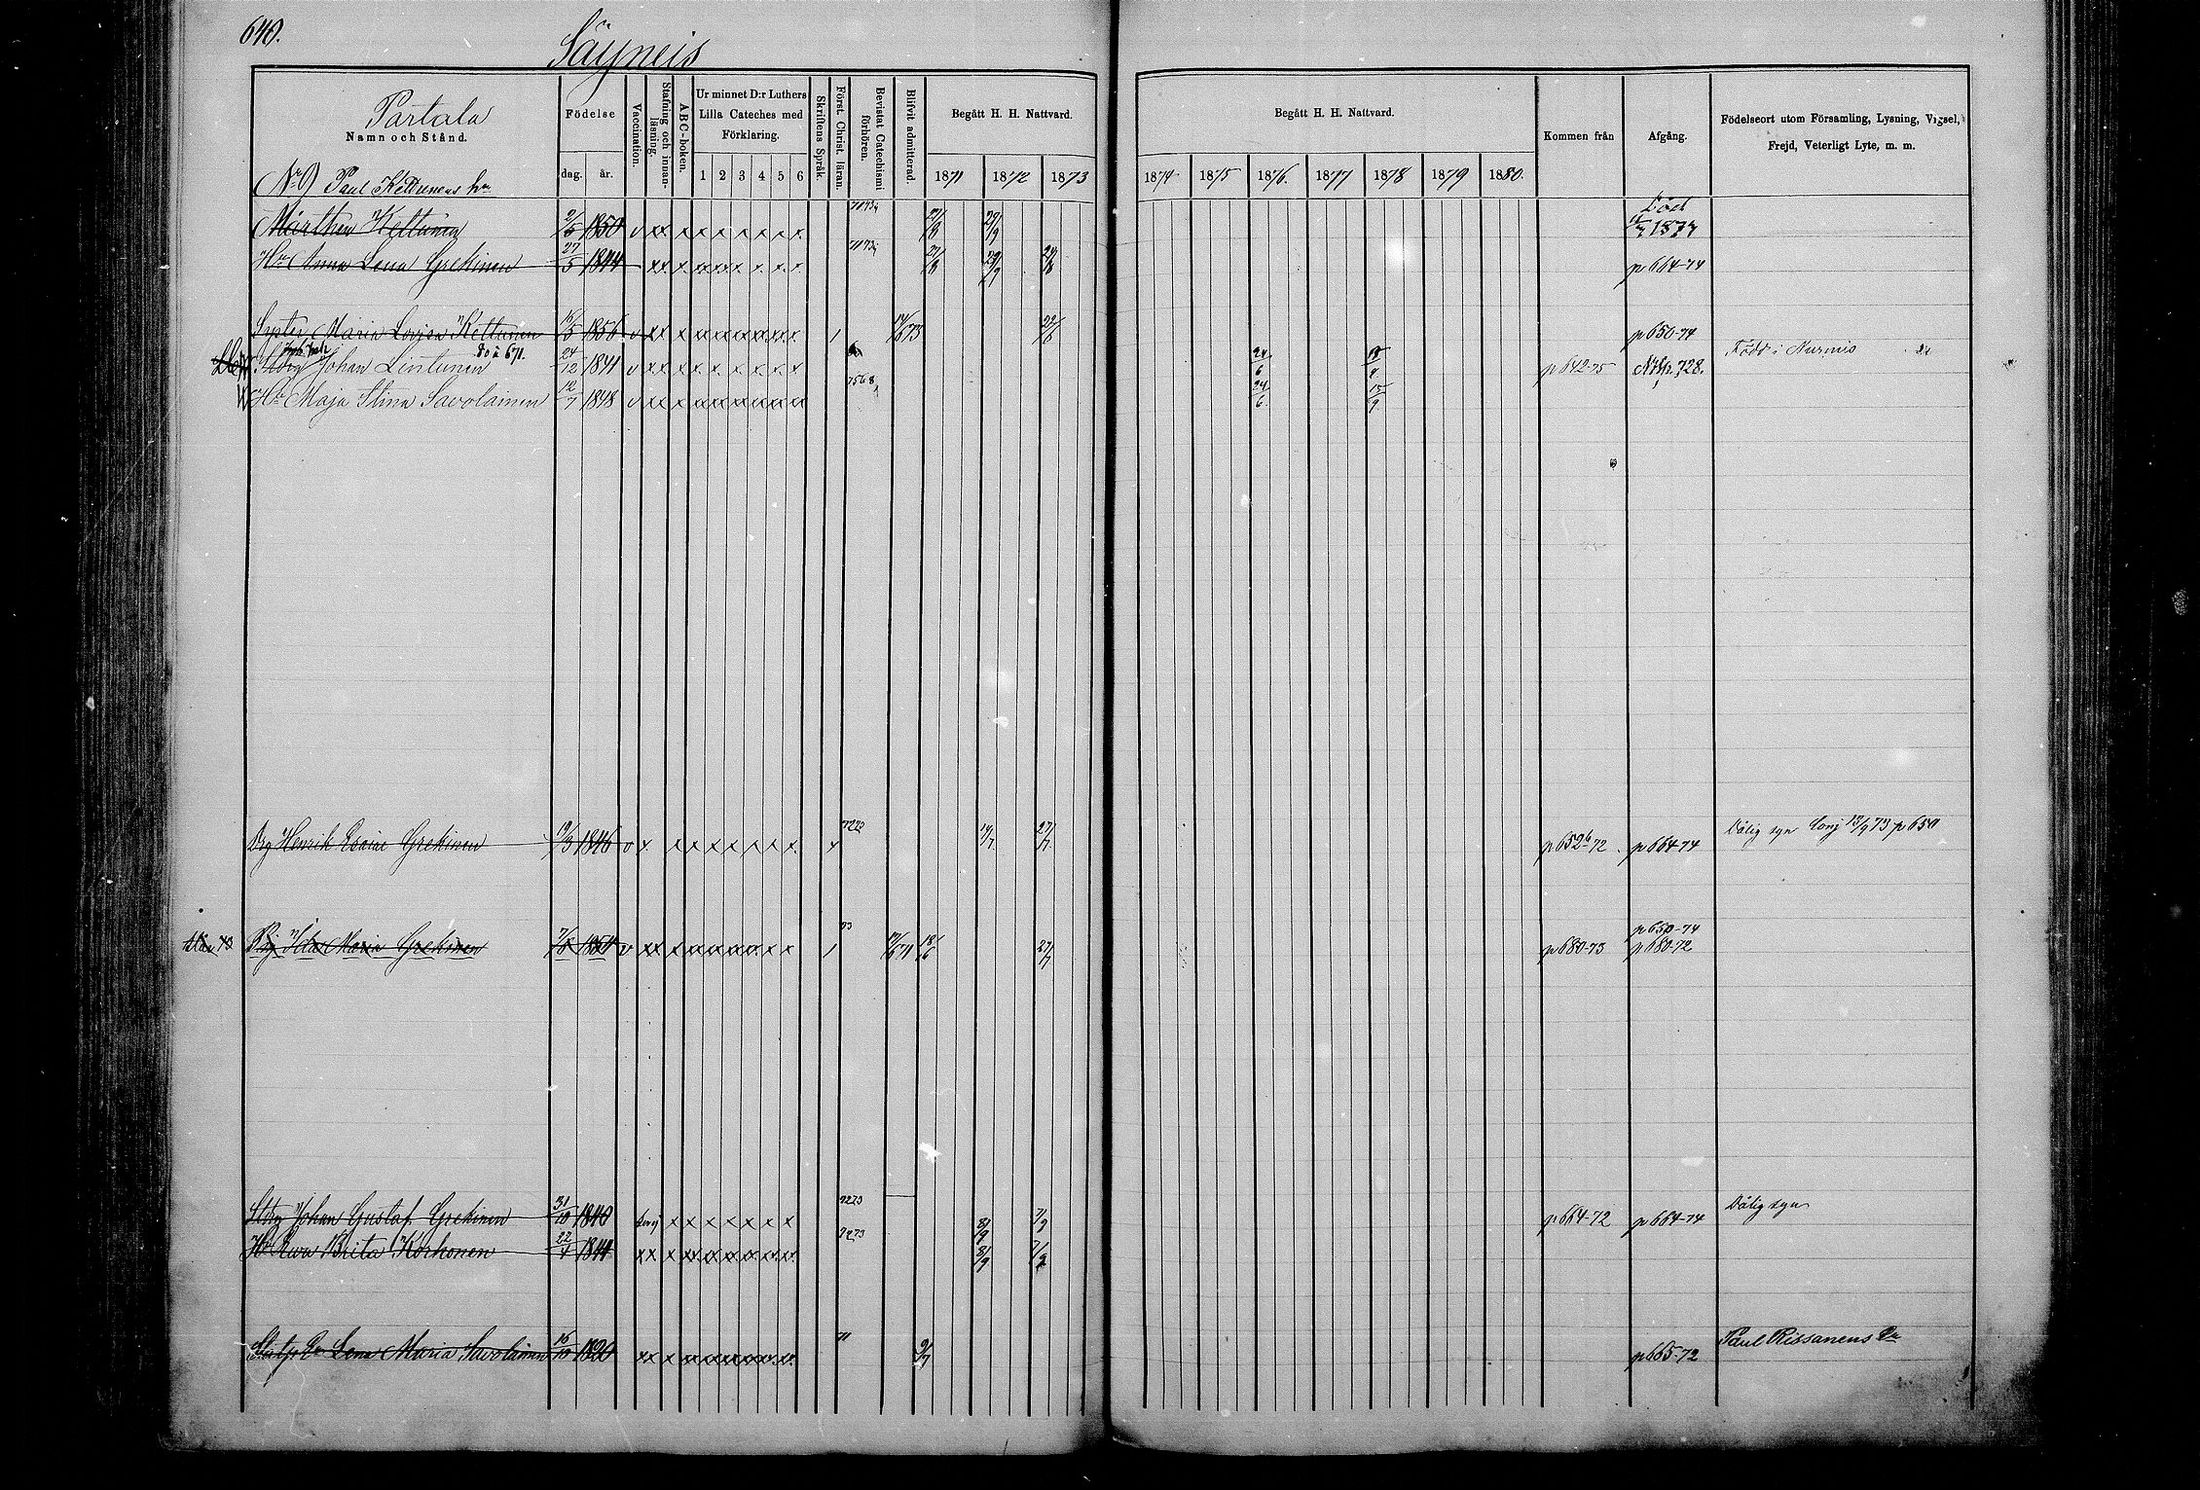 640.
Säyneis
Partala
Namn och Stånd.
Födelse
dag. år.
Vaccination.
Stafning och innanläsning.
ABC-boken.
Ur minnet D:r Luthers Lilla Cateches med Förklaring.
1 2 3 4 5 6
Skriftens Språk.
Först. Christ. läran.
Bevistat Catechismi förhören.
Blifvit admitterad.
Begått H. H. Nattvard.
1871 1872 1873
Begått H. H. Nattvard.
1874 1875 1876. 1877 1878 1879 1880.
Kommen från
Afgång.
Födelseort utom Församling, Lysning, Vigsel, Frejd, Veterligt Lyte, m. m.
No 9 Paul Kettunens
Mårthen Kettunen 2/5 1850 v xx x x x x x x x 29/9 Död 1877
Hu Anna Lena Grekinen 27/5 1844 xx x x x x x x x 29/9 p 664-74
Syster Maria Lovisa Kettunen 16/5 1856 v xx x 1 p 650-74
Johan Lintunen 80 å 671. 24/12 1841 v xx x x x x x x x 24/6 p 642-75 728. Född i Nurmis
Hu Maja Stina Savolainen 12/7 1848 v xx x 24/6. 15/9
Drg Henrik Esaias Grekinen 19/3 1846 v x x x x x x x x x 7273 27/7 p 652b-72 p 664-74 Dålig syn 73 p 650
p 650-74
Pig Ida Maria Grekinen 1850 v xx x 1 73 18/6 27/7 p 680-73 p 680-72
Johan Gustaf Grekinen 31/10 1840 x x x x x x x 7273 8/9 7/9 p 664-72 p 664-74 Dålig syn
Hu Eva Brita Korhonen 22/4 1844 xx x x x x x x x 7273 8/9 7/9
Lena Maria Savolainen 16/10 1820 xx x 71 9/7 p 665-72 Paul Rissanens